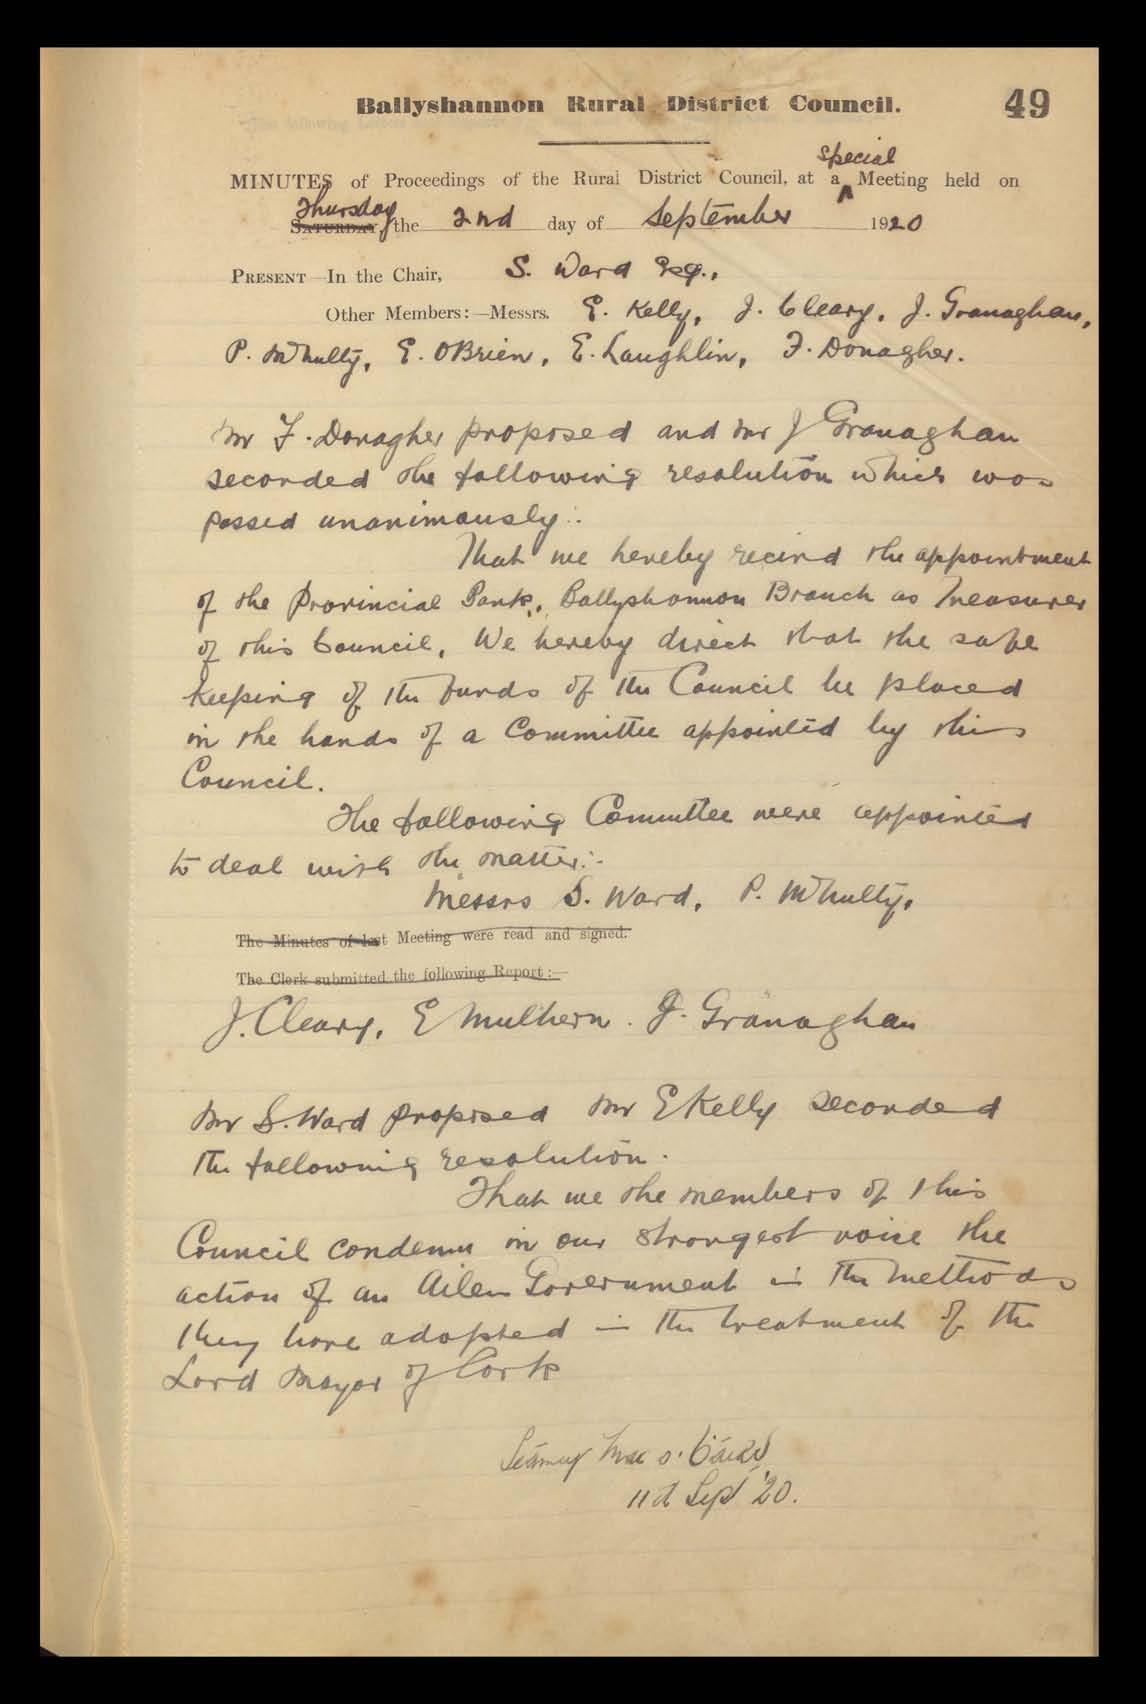 Ballyshannon Rural District Council.
49
special
MINUTES of Proceedings of the Rural District Council, at a ^ Meeting held on
Thursday
SATURDAY, the 2nd day of September 1920
PRESENT—In the Chair, S. Ward Esq.,
Other Members:—Messrs. E. Kelly, J. Cleary, J. Granaghan,
P. McNulty, E. OBrien, E. Laughlin, F. Donagher.
Mr F. Donagher proposed and Mr J Granaghan
seconded the following resolution which was
passed unanimously:.
That we hereby recind the appointment
of the Provincial Bank, Ballyshannon Branch as Treasurer
of this Council, We hereby direct that the safe
keeping of the funds of the Council be placed
in the hands of a Committee appointed by this
Council.
The following Committee were appointed
to deal with the matter:-
Messrs S. Ward, P. McNulty,
The Minutes of last Meeting were read and signed.
The Clerk submitted the following Report:—
J. Cleary, E Mulhern. J. Granaghan
Mr S. Ward proposed Mr E Kelly seconded
the following resolution.
That we the members of this
Council condemn in our strongest voice the
action of an Ailen Government in the methods
they have adopted in the treatment of the
Lord Mayor of Cork
Séamus Mac a'
11th Sept '20.